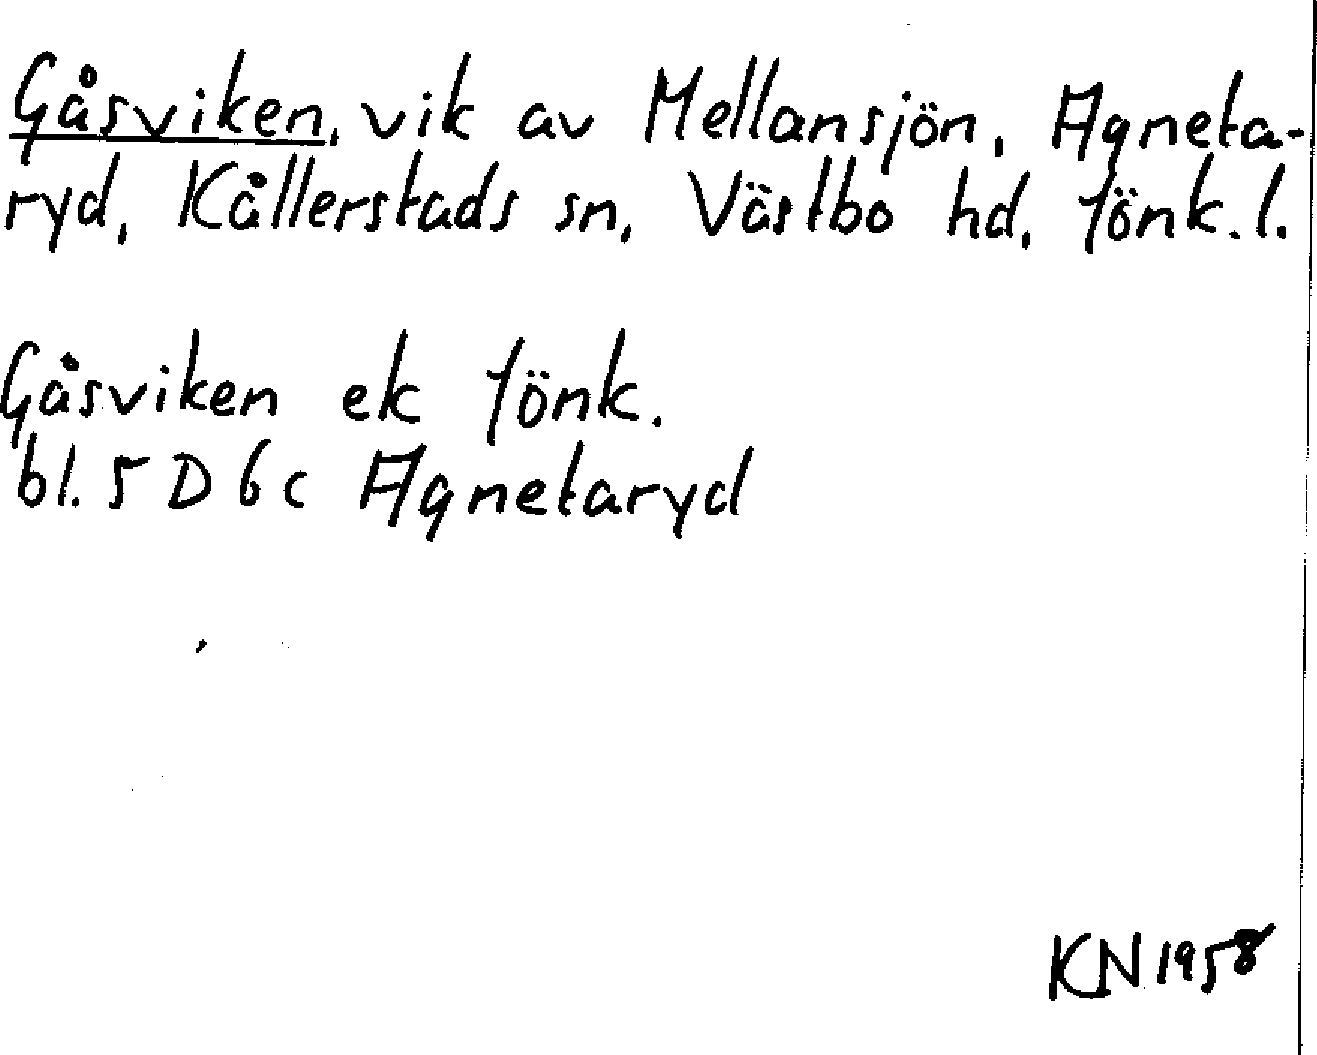 Gåsviken, vik av Mellansjön, Agneta-
ryd, Kållerstads sn, Västbo hd, Jönk. l.
Gåsviken ek Jönk.
bl. 5 D 6 c Agnetaryd
KN 1958